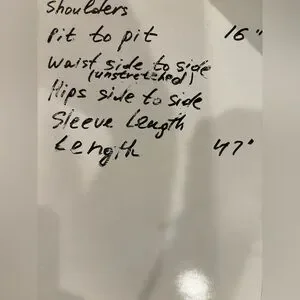 Shoulders
Pit to pit 16"
Waist side to side
(unstretched)
Hips side to side
Sleeve Length
Length 47"